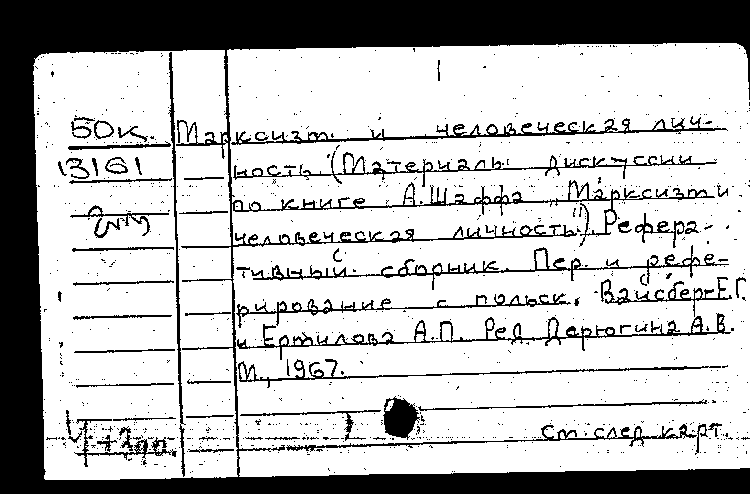 50к. Марксизм и человеческая лич-
13161 ность. (Материалы дискуссии
по книге А.Шаффа „Марксизм и
человеческая личность"). Рефера-
тивный сборник. Пер. и рефе-
рирование с польск. Вайсберг Е.Г.
и Ермилова А.П. Ред. Дерюгина А.В.
М., 1967.
См. след. карт.